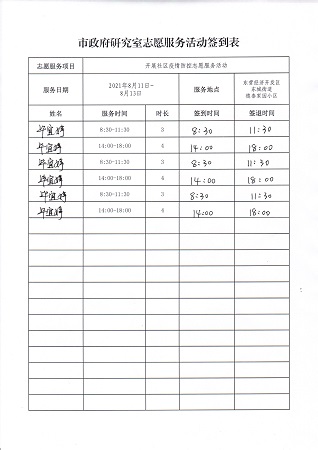 市政府研究室志愿服务活动签到表
志愿服务项目 开展社区疫情防控志愿服务活动
服务日期 2021年8月11日-8月13日 服务地点 东营经济开发区东城街道
姓名 服务时间 时长 签到时间 签退时间
8:30-11:30 3 8:30 11:30
14:00-18:00 4 14:00 18:00
8:30-11:30 3 8:30 11:30
14:00-18:00 4 14:00 18:00
8:30-11:30 3 8:30 11:30
14:00-18:00 4 14:00 18:00